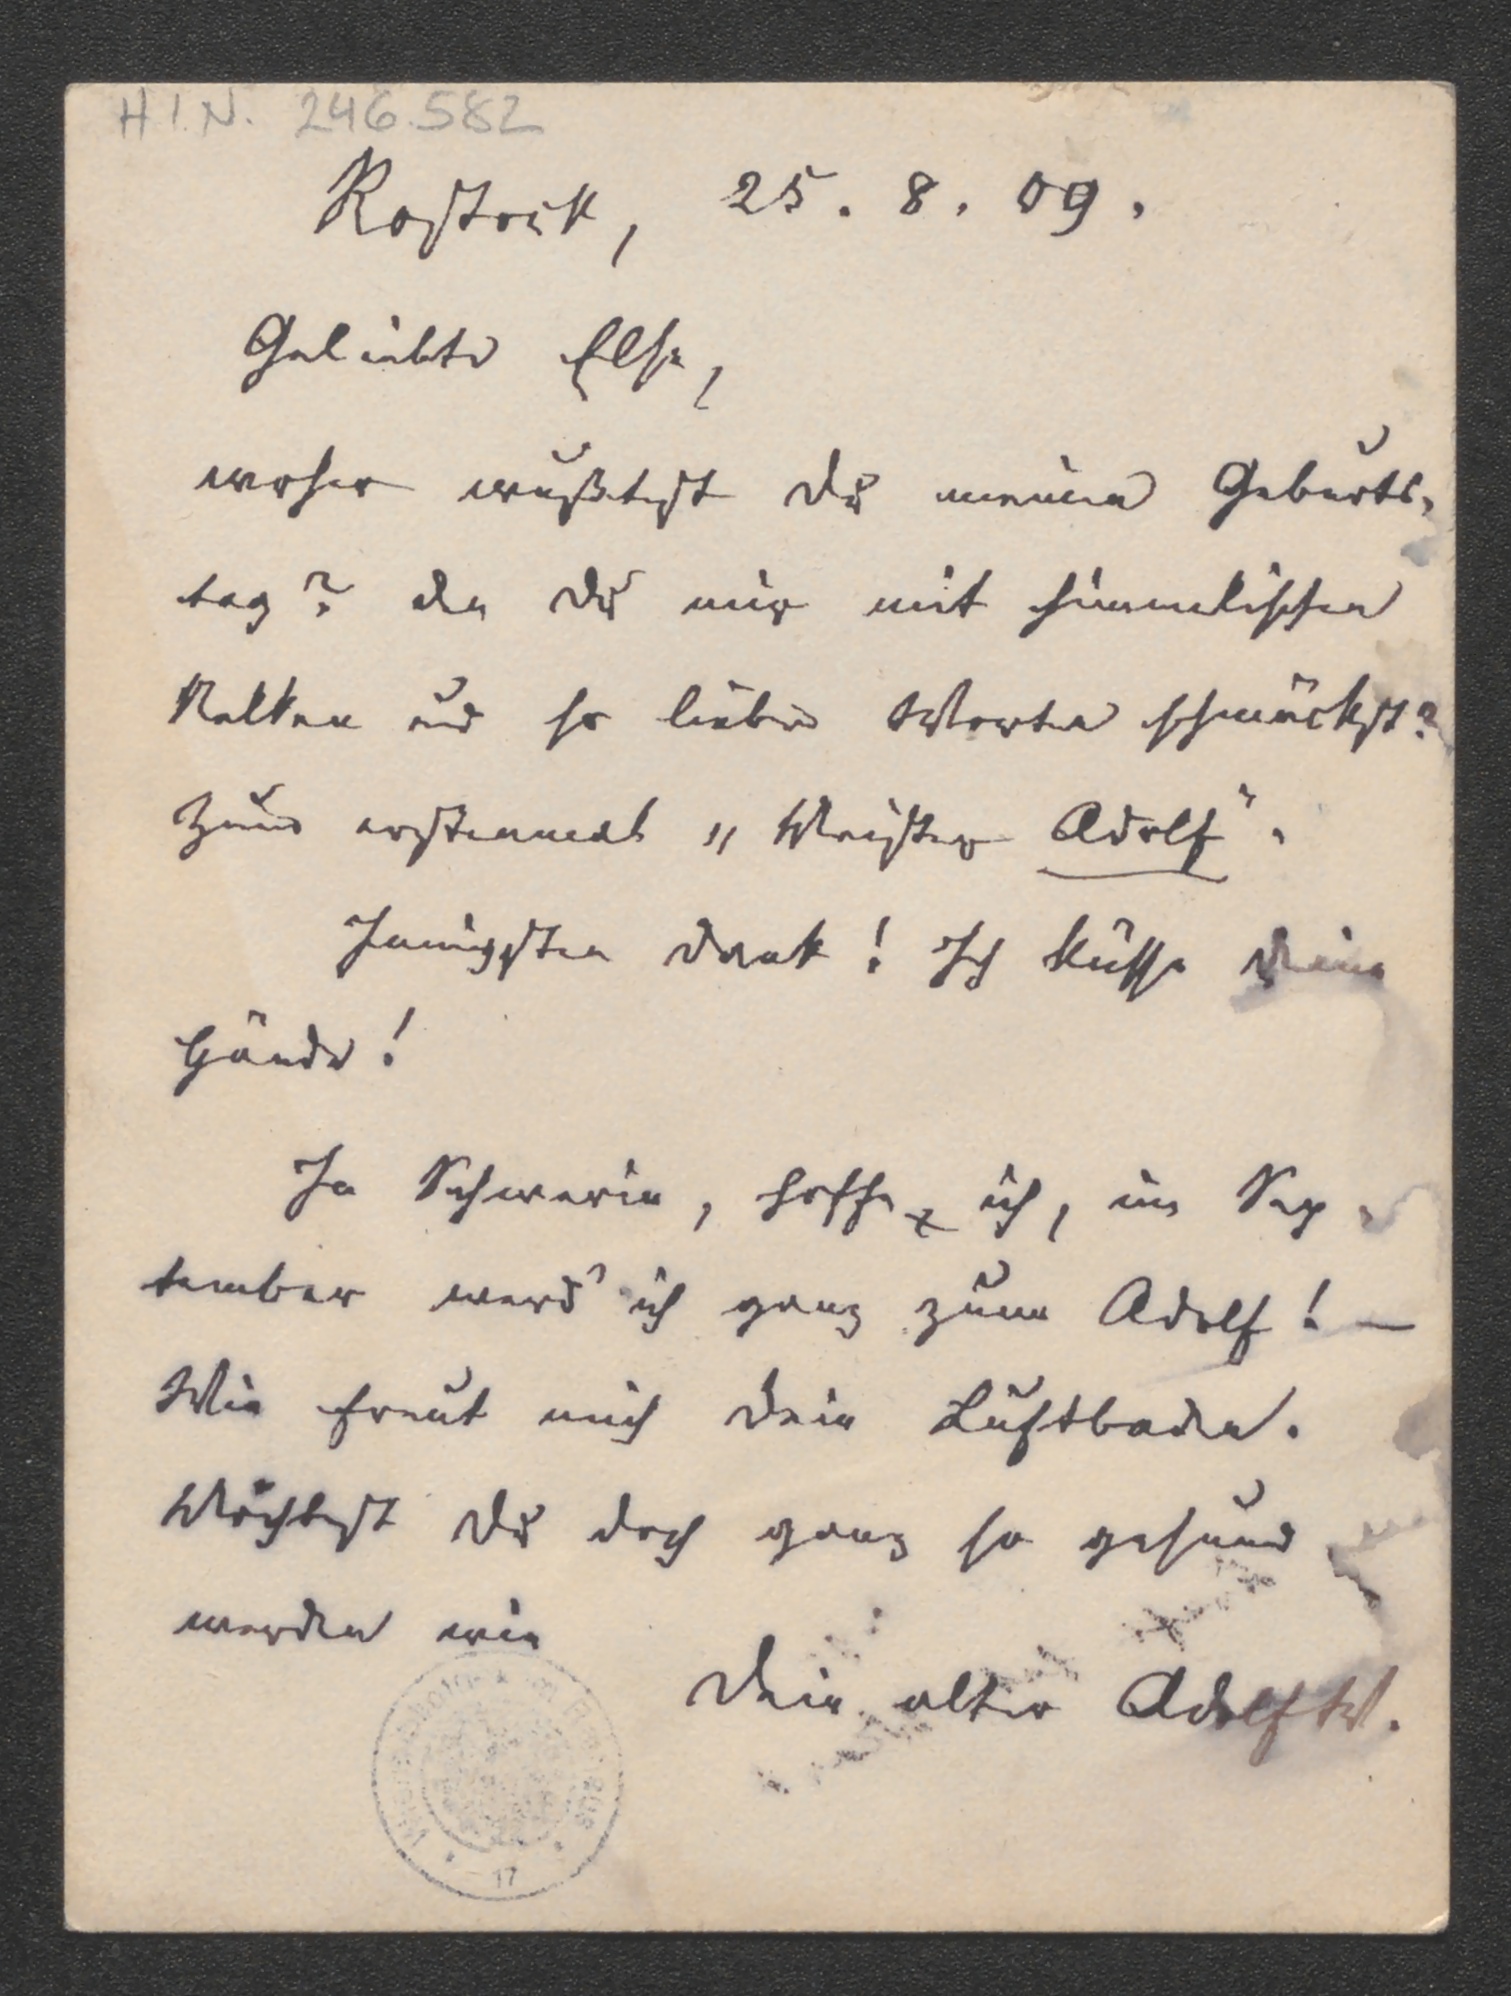 H.I.N. 246.582
Rostock, 25. 8. 09.
Geliebte Else,
woher wußtest Du meinen Geburts-
tag? den Du mir mit himmlischen
Nelken und so lieben Worten schmückst?
Zum erstenmal „Meister Adolf".
Innigsten Dank! Ich küsse Deine
Hände!
In Schwerin, hoffe ich, im Sep-
tember werd' ich ganz zum Adolf! —
Wie freut mich Dein Luftbaden.
Möchtest Du doch ganz so gesund
werden wie
Dein alter Adolf W.
17